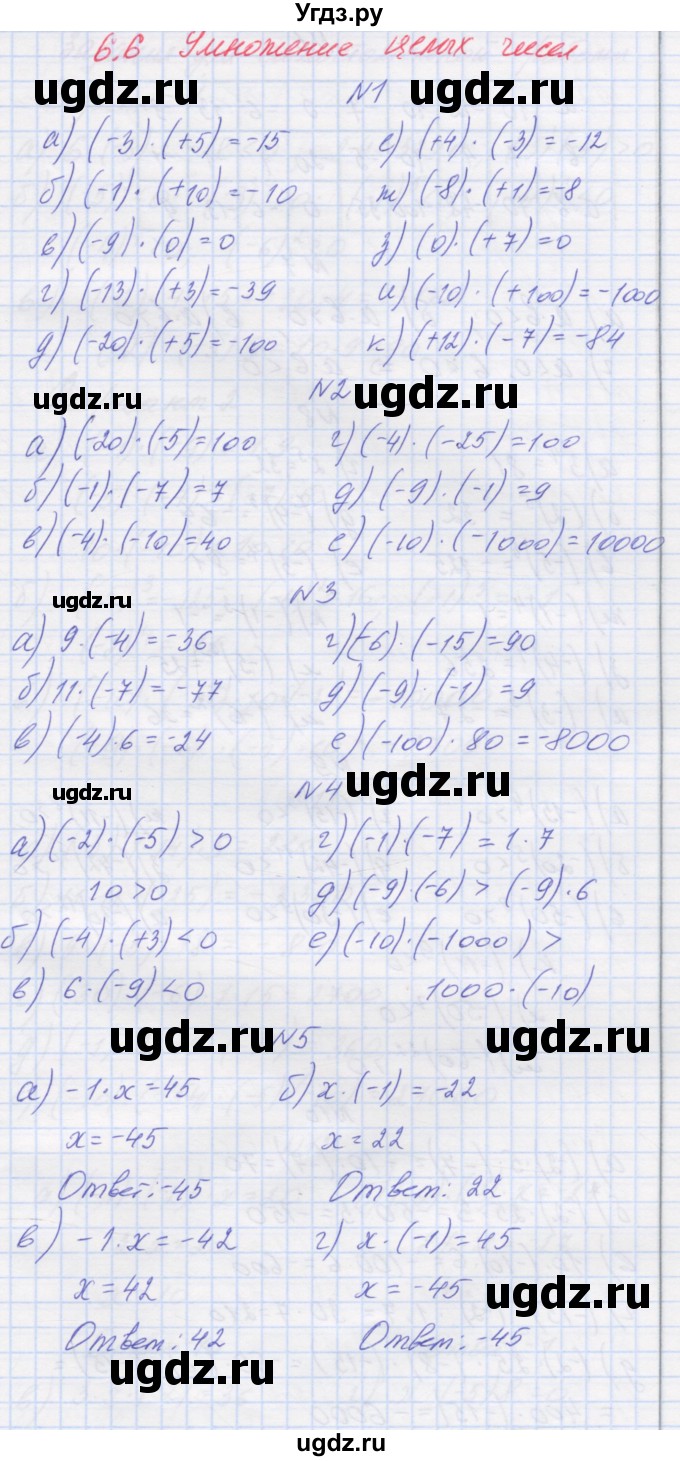 Угдз.ру
6.6 Умножение целых чисел
ugdz.ru ugdz.ru
№1
а) (-3)·(+5)=-15 е) (+4)·(-3)=-12
б) (-1)·(+10)=-10 ж) (-8)·(+1)=-8
в) (-9)·(0)=0 з) (0)·(+7)=0
г) (-13)·(+3)=-39 и) (-10)·(+100)=-1000
д) (-20)·(+5)=-100 к) (+12)·(-7)=-84
ugdz.ru №2 ugdz.ru
а) (-20)·(-5)=100 г) (-4)·(-25)=100
б) (-1)·(-7)=7 д) (-9)·(-1)=9
в) (-4)·(-10)=40 е) (-10)·(-1000)=10000
ugdz.ru №3
а) 9·(-4)=-36 г) (-6)·(-15)=90
б) 11·(-7)=-77 д) (-9)·(-1)=9
в) (-4)·6=-24 е) (-100)·80=-8000
ugdz.ru №4 ugdz.ru
а) (-2)·(-5)>0 г) (-1)·(-7)=1·7
10>0 д) (-9)·(-6)>(-9)·6
б) (-4)·(+3)<0 е) (-10)·(-1000)>
в) 6·(-9)<0 1000·(-10)
ugdz.ru №5 ugdz.ru
а) -1·x=45 б) x·(-1)=-22
x=-45 x=22
Ответ:-45 Ответ: 22
в) -1·x=-42 г) x·(-1)=45
x=42 x=-45
ugdz.ru
Ответ: 42 Ответ:-45
ugdz.ru
ugdz.ru